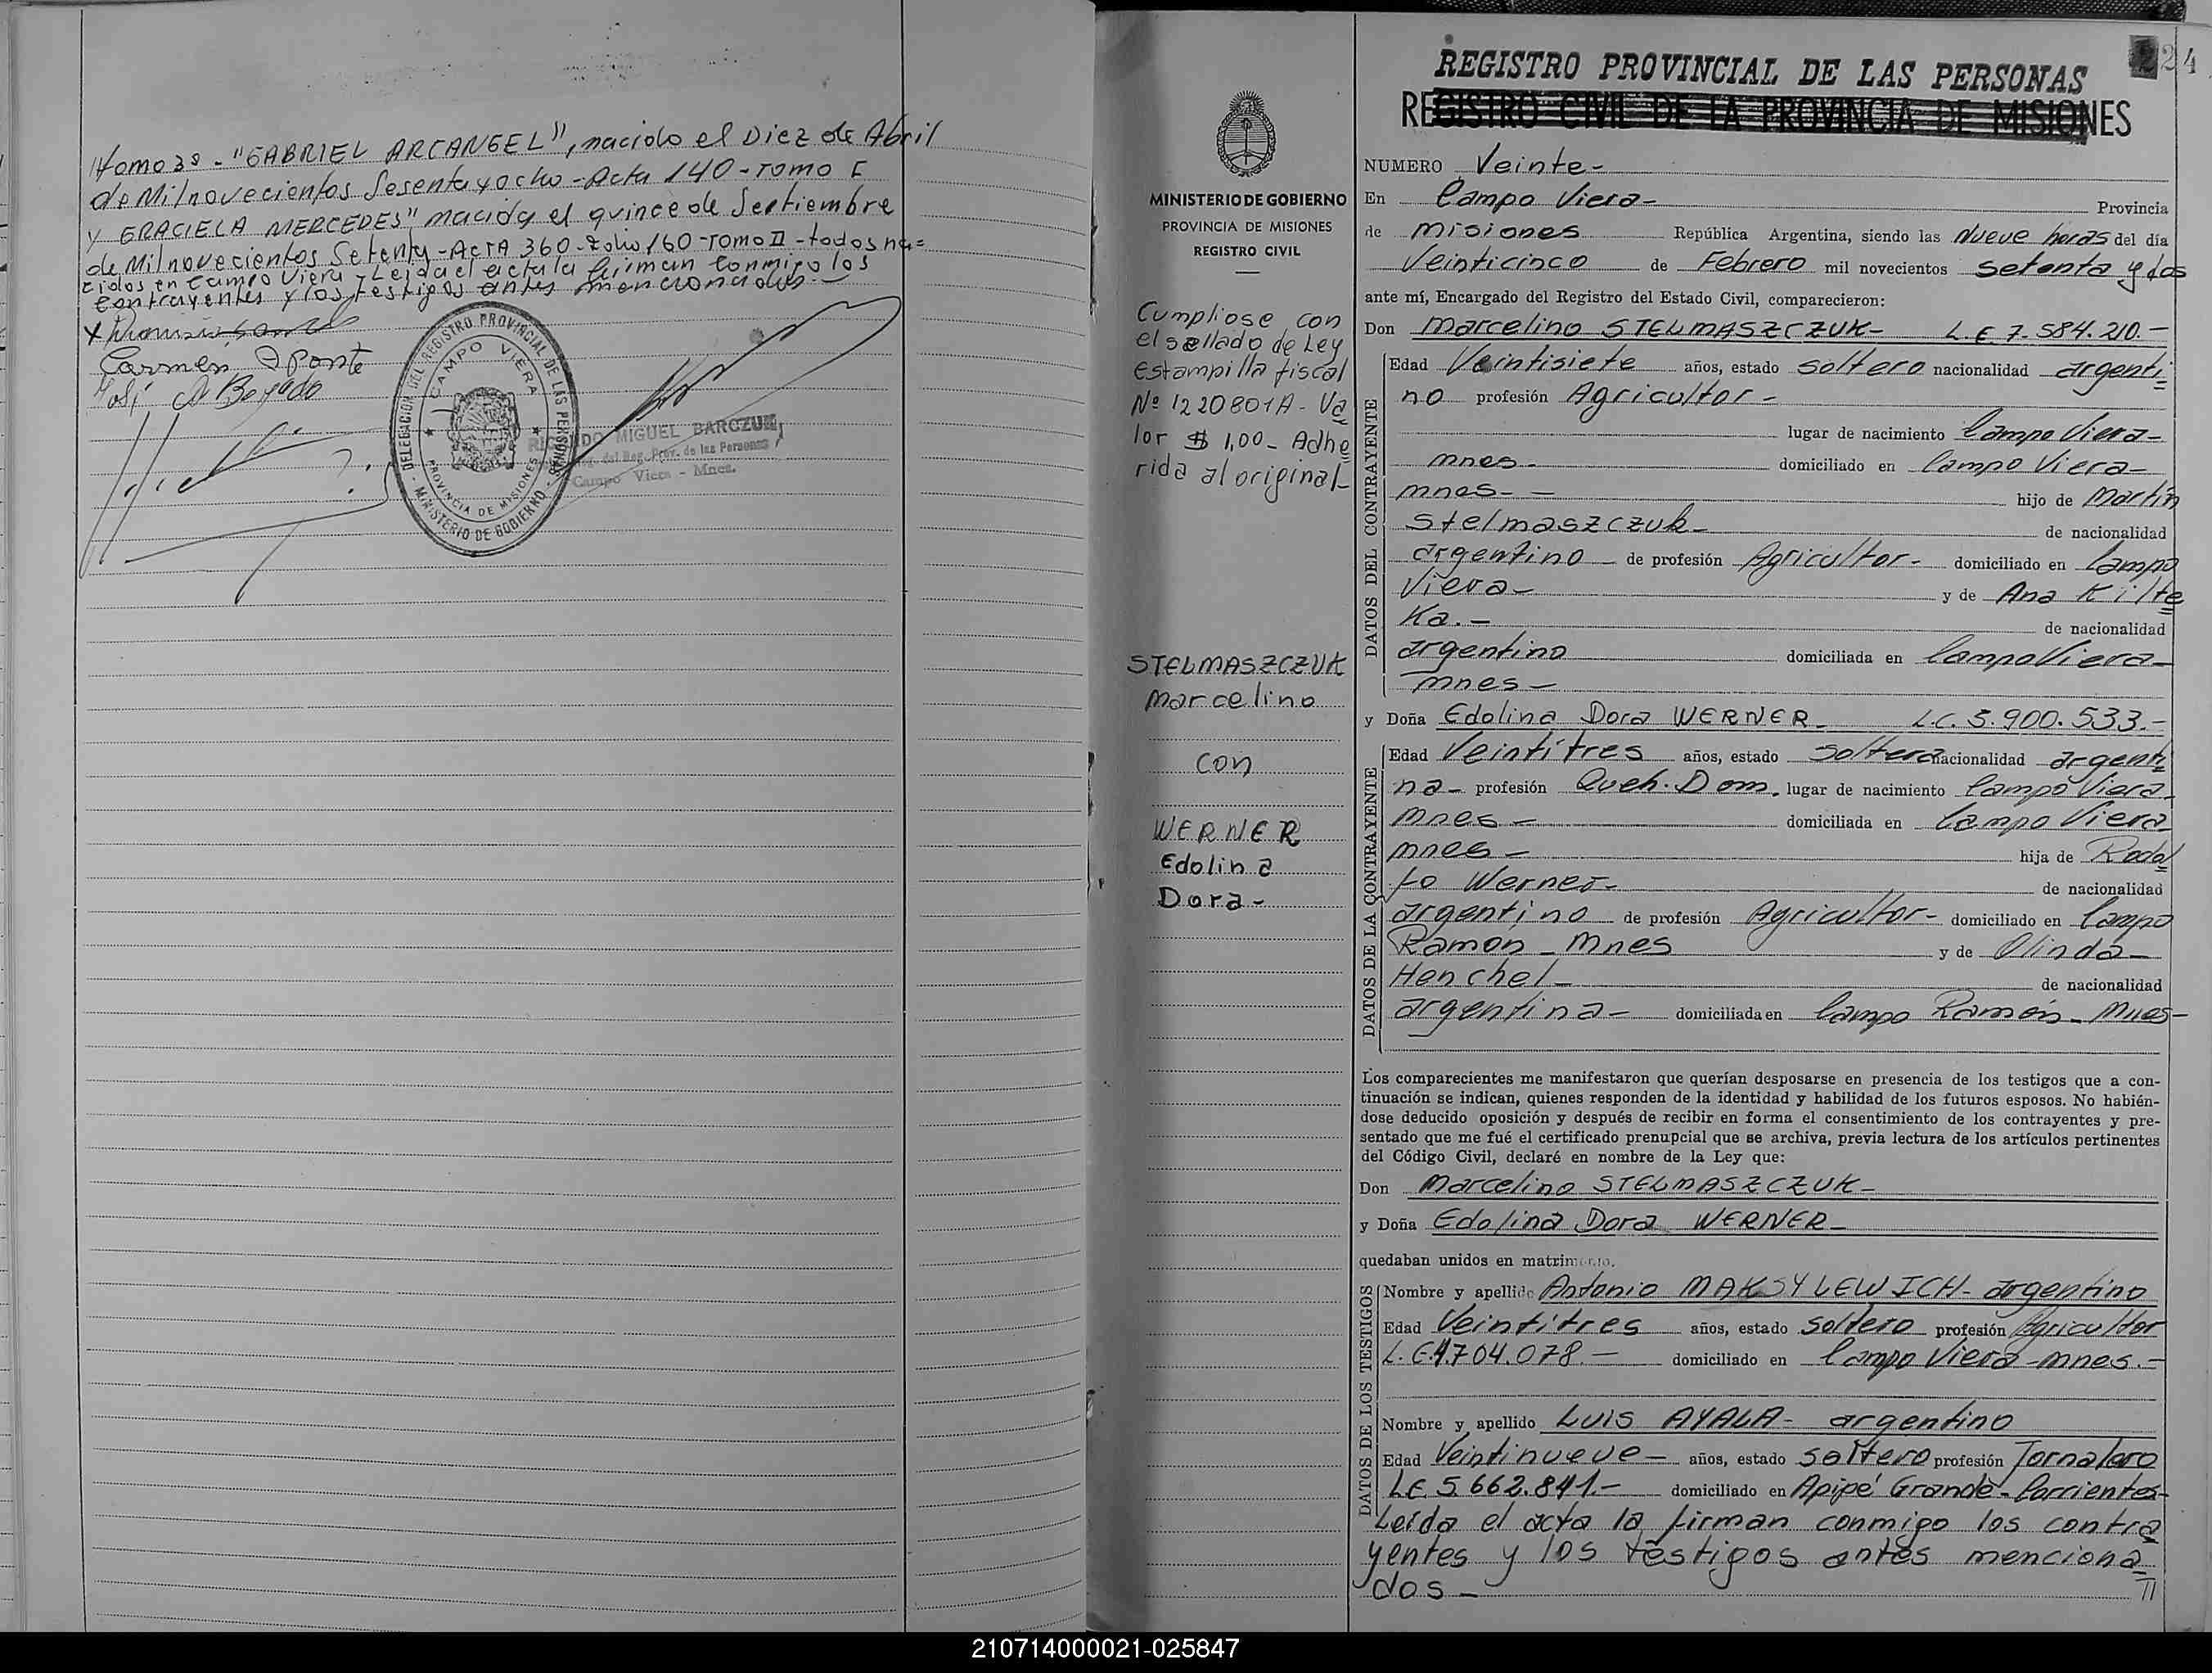 Tomo 3º - "GABRIEL ARCANGEL", nacido el Diez de Abril
de Milnovecientos Sesentayocho - Acta 140 - Tomo I
y GRACIELA MERCEDES" nacida el quince de Septiembre
de Milnovecientos Setenta - ACTA 360 - Folio 160 - TOMO II - todos na=
cidos en Campo Viera - Leida el acta la firman conmigo los
contrayentes y los testigos antes mencionados.-
Carmen Aponte
DELEGACION DEL REGISTRO PROVINCIAL DE LAS PERSONAS
CAMPO VIERA
PROVINCIA DE MISIONES
MINISTERIO DE GOBIERNO
MIGUEL BARCZUK
del Reg. Prov. de las Personas
Campo Viera - Mnes.
MINISTERIO DE GOBIERNO
PROVINCIA DE MISIONES
REGISTRO CIVIL
Cumpliose con
el sellado de Ley
estampilla fiscal
Nº 1220801A - Va
lor $ 1,00 - Adhe
rida al original-
STELMASZCZUK
Marcelino
con
WERNER
Edolina
Dora-
224
REGISTRO PROVINCIAL DE LAS PERSONAS
REGISTRO CIVIL DE LA PROVINCIA DE MISIONES
NUMERO Veinte-
En Campo Viera- Provincia
de Misiones República Argentina, siendo las Nueve horas del día
Veinticinco de Febrero mil novecientos setenta y dos
ante mí, Encargado del Registro del Estado Civil, comparecieron:
Don Marcelino STELMASZCZUK- L.E. 7.584.210.-
DATOS DEL CONTRAYENTE
Edad Veintisiete años, estado soltero nacionalidad argenti=
no profesión Agricultor-
lugar de nacimiento Campo Viera-
mnes- domiciliado en Campo Viera-
mnes- - hijo de Martín
Stelmaszczuk- de nacionalidad
argentino - de profesión Agricultor- domiciliado en Campo
Viera- y de Ana Kilte=
Ka.- de nacionalidad
argentino domiciliada en Campo Viera-
mnes-
y Doña Edolina Dora WERNER- L.C. 5.900.533.-
DATOS DE LA CONTRAYENTE
Edad Veintitres años, estado soltera nacionalidad argenti=
na- profesión Queh. Dom. lugar de nacimiento Campo Viera-
mnes- domiciliada en Campo Viera-
mnes- hija de Rodol=
fo Werner- de nacionalidad
argentino de profesión Agricultor- domiciliado en Campo
Ramón - Mnes y de Olinda-
Henchel- de nacionalidad
argentina- domiciliada en Campo Ramón - Mnes-
Los comparecientes me manifestaron que querían desposarse en presencia de los testigos que a con-
tinuación se indican, quienes responden de la identidad y habilidad de los futuros esposos. No habién-
dose deducido oposición y después de recibir en forma el consentimiento de los contrayentes y pre-
sentado que me fué el certificado prenupcial que se archiva, previa lectura de los artículos pertinentes
del Código Civil, declaré en nombre de la Ley que:
Don Marcelino STELMASZCZUK-
y Doña Edolina Dora WERNER-
quedaban unidos en matrimonio.
DATOS DE LOS TESTIGOS
Nombre y apellido Antonio MAKSYLEWICH- argentino
Edad Veintitres años, estado soltero profesión Agricultor
L.E. 4.704.078.- domiciliado en Campo Viera-mnes.-
Nombre y apellido LUIS AYALA- argentino
Edad Veintinueve- años, estado soltero profesión Jornalero
L.E. 5.662.841.- domiciliado en Apipé Grande-Corrientes-
Leída el acta la firman conmigo los contra
yentes y los testigos antes menciona=
dos-
210714000021-025847